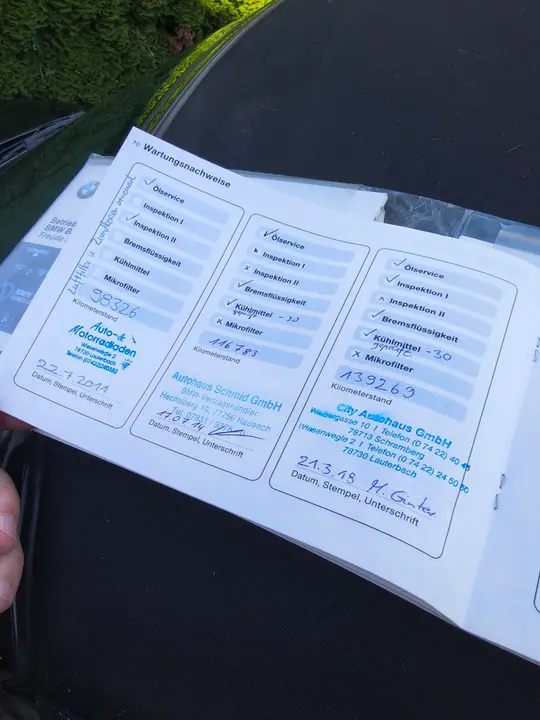 10 Wartungsnachweise
Luftfilter u. Zündkerzen erneuert
Ölservice
Inspektion I
Inspektion II
Bremsflüssigkeit
Kühlmittel
Mikrofilter
98326
Kilometerstand
Auto-&
Motorradladen
Wiesenwegle 2
78730 Lauterbach
22.7.2011
Datum, Stempel, Unterschrift
Ölservice
Inspektion I
Inspektion II
Bremsflüssigkeit
Kühlmittel -30
geprüft
Mikrofilter
116783
Kilometerstand
Autohaus Schmid GmbH
BMW-Vertragshändler
Hechtsberg 10, 77756 Hausach
Datum, Stempel, Unterschrift
Ölservice
Inspektion I
Inspektion II
Bremsflüssigkeit
Kühlmittel -30
geprüft
Mikrofilter
139269
Kilometerstand
City Autohaus GmbH
I Telefon (0 74 22) 40 45
78713 Schramberg
Wiesenwegle 2 I Telefon (0 74 22) 24 50 50
78730 Lauterbach
21.3.18 M. Günter
Datum, Stempel, Unterschrift
BMW B
Freude